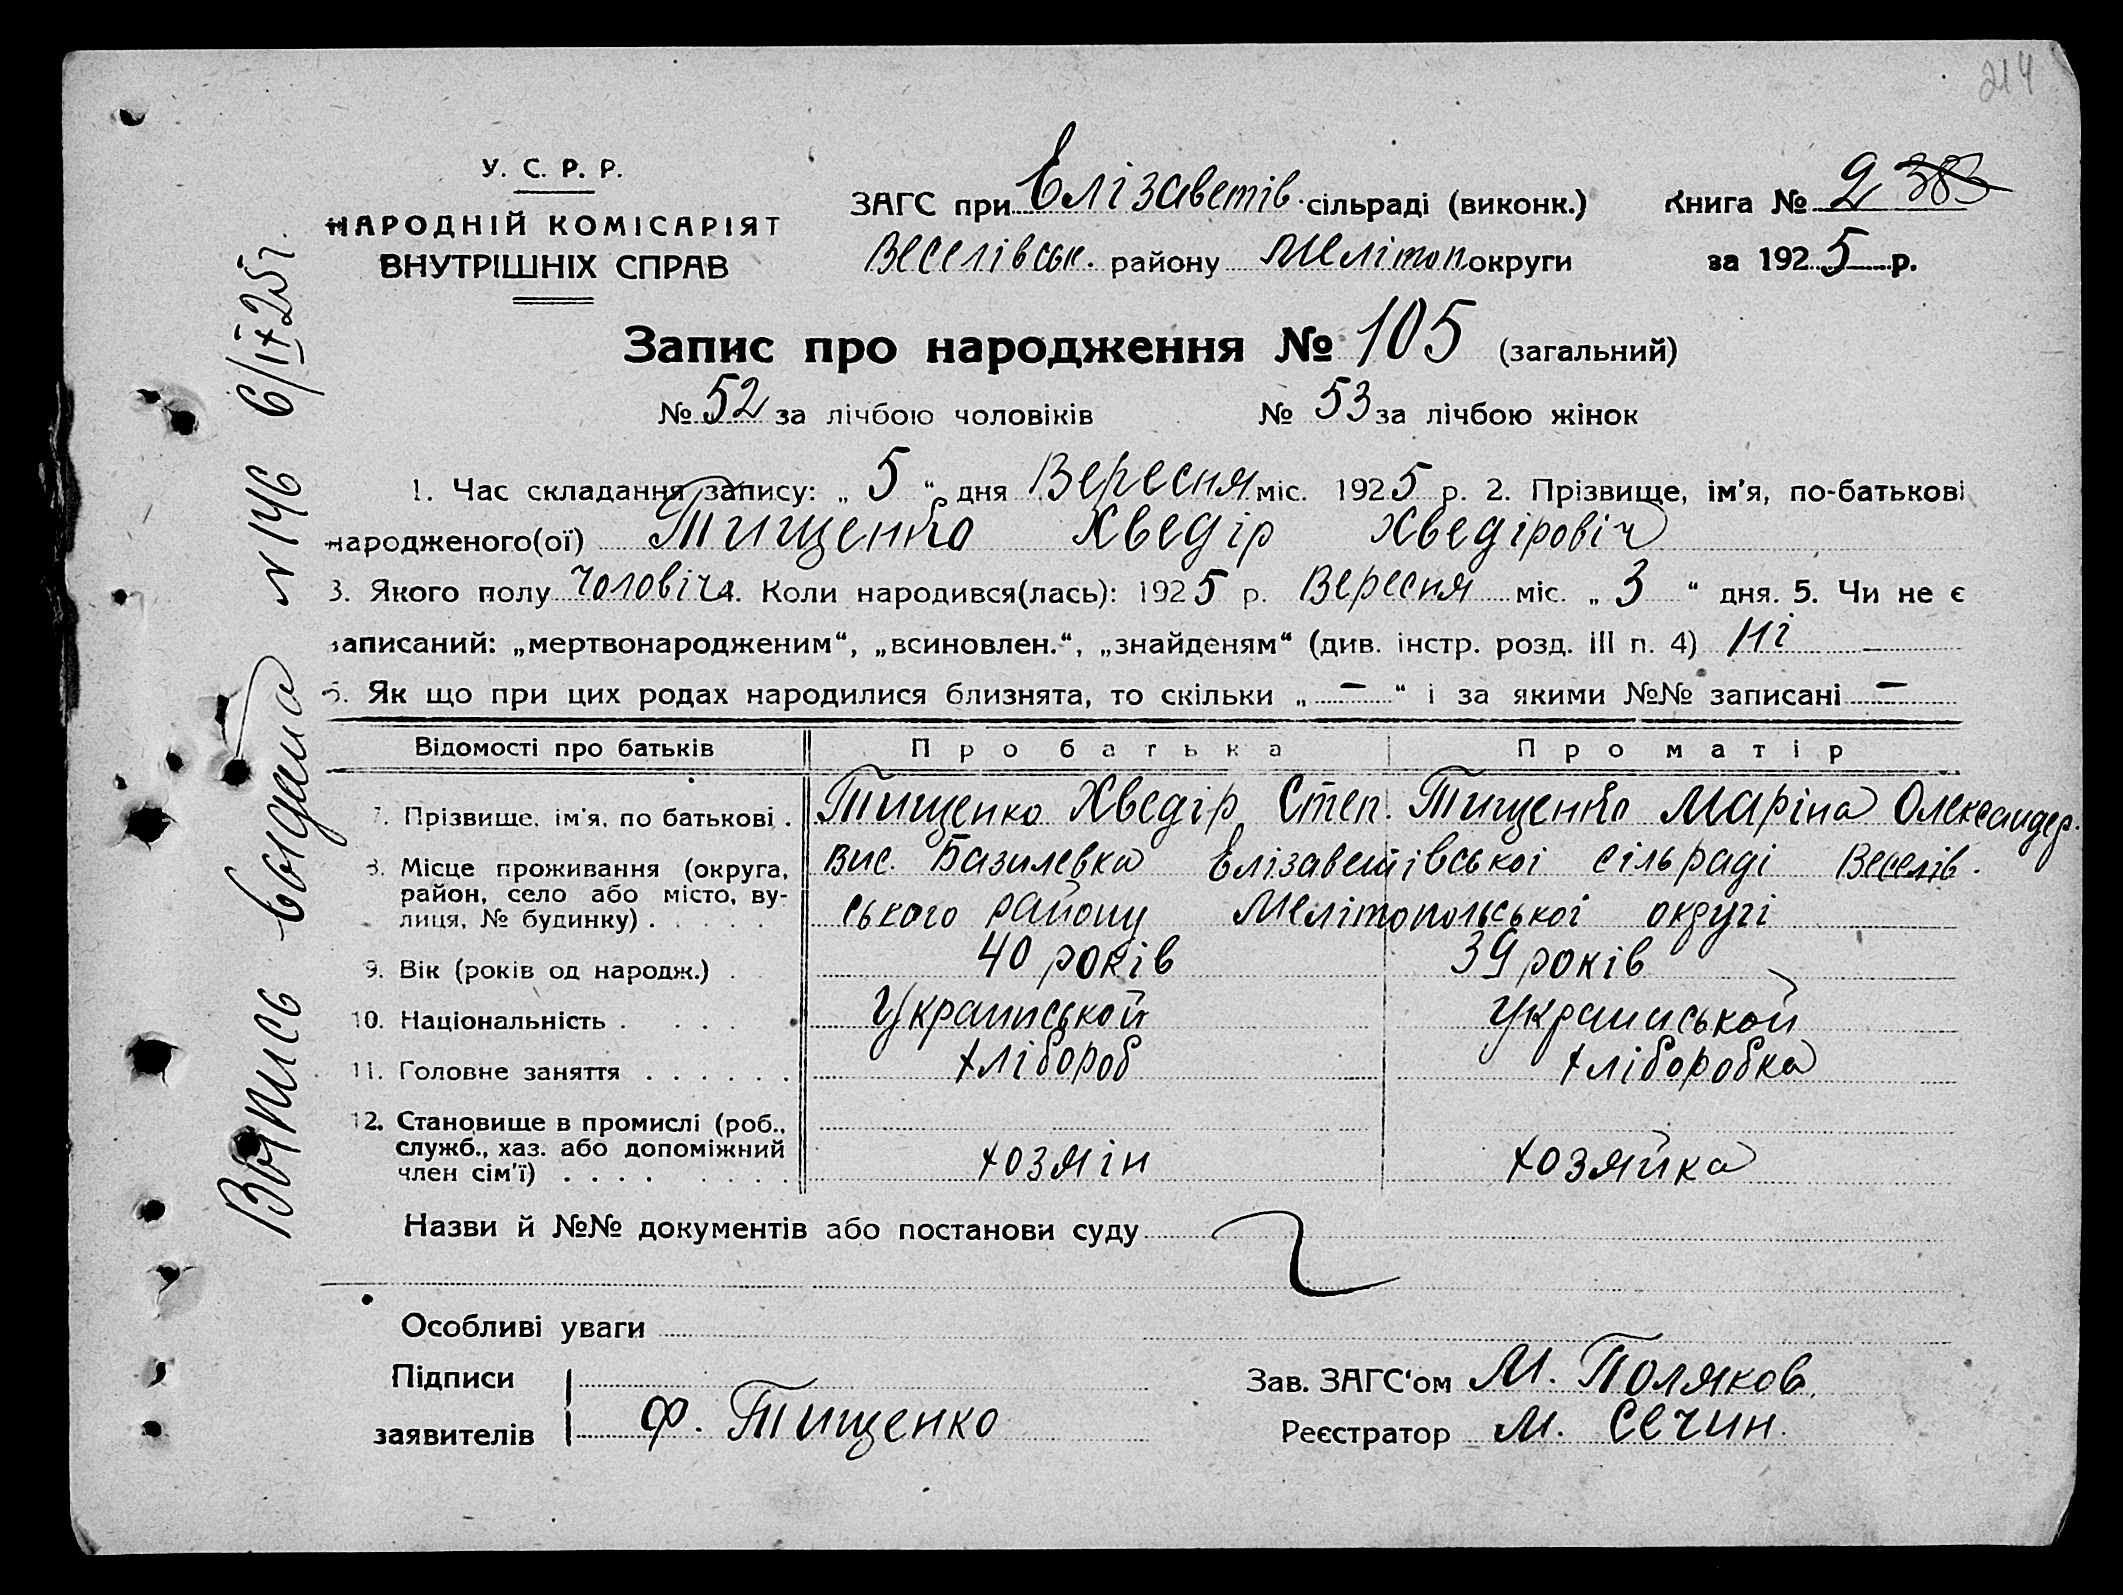 214
У. С. Р. Р.
НАРОДНІЙ КОМІСАРІЯТ
ВНУТРІШНІХ СПРАВ
ЗАГС при Елізаветів. сільраді (виконк.)
Веселівськ. району Мелітоп округи
Книга № 2 383
за 1925 р.
Запис про народження № 105 (загальний)
№ 52 за лічбою чоловіків № 53 за лічбою жінок
1. Час складання запису: „ 5 “ дня Вересня міс. 1925 р. 2. Прізвище, ім'я, по-батькові
народженого(ої) Тищенко Хведір Хведірович
3. Якого полу чоловіч 4. Коли народився(лась): 1925 р. Вересня міс. „ 3 “ дня. 5. Чи не є
записаний: „мертвонародженим“, „всиновлен.“, „знайденям“ (див. інстр. розд. III п. 4) Ні
6. Як що при цих родах народилися близнята, то скільки „ — “ і за якими №№ записані —
Відомості про батьків Про батька Про матір
7. Прізвище, ім'я, по батькові . Тищенко Хведір Степ. Тищенко Маріна Олександер.
8. Місце проживання (округа, район, село або місто, вулиця, № будинку) . . . . . вис. Базилевка Елізаветівської сільраді Веселів.
ського району Мелітопольської округі
9. Вік (років од народж.) . 40 років 39 років
10. Національність . . . . Украинськой Украинськой
11. Головне заняття . . . . . . хлібороб хліборобка
12. Становище в промислі (роб., служб., хаз. або допоміжний член сім'ї) . . . . . . . . хозяін хозяйка
Назви й №№ документів або постанови суду
Особливі уваги
Підписи
заявителів Ф. Тищенко
Зав. ЗАГС'ом М. Поляков.
Реєстратор М. Сечин.
Выпись выдана № 146 6/IX 25 г.